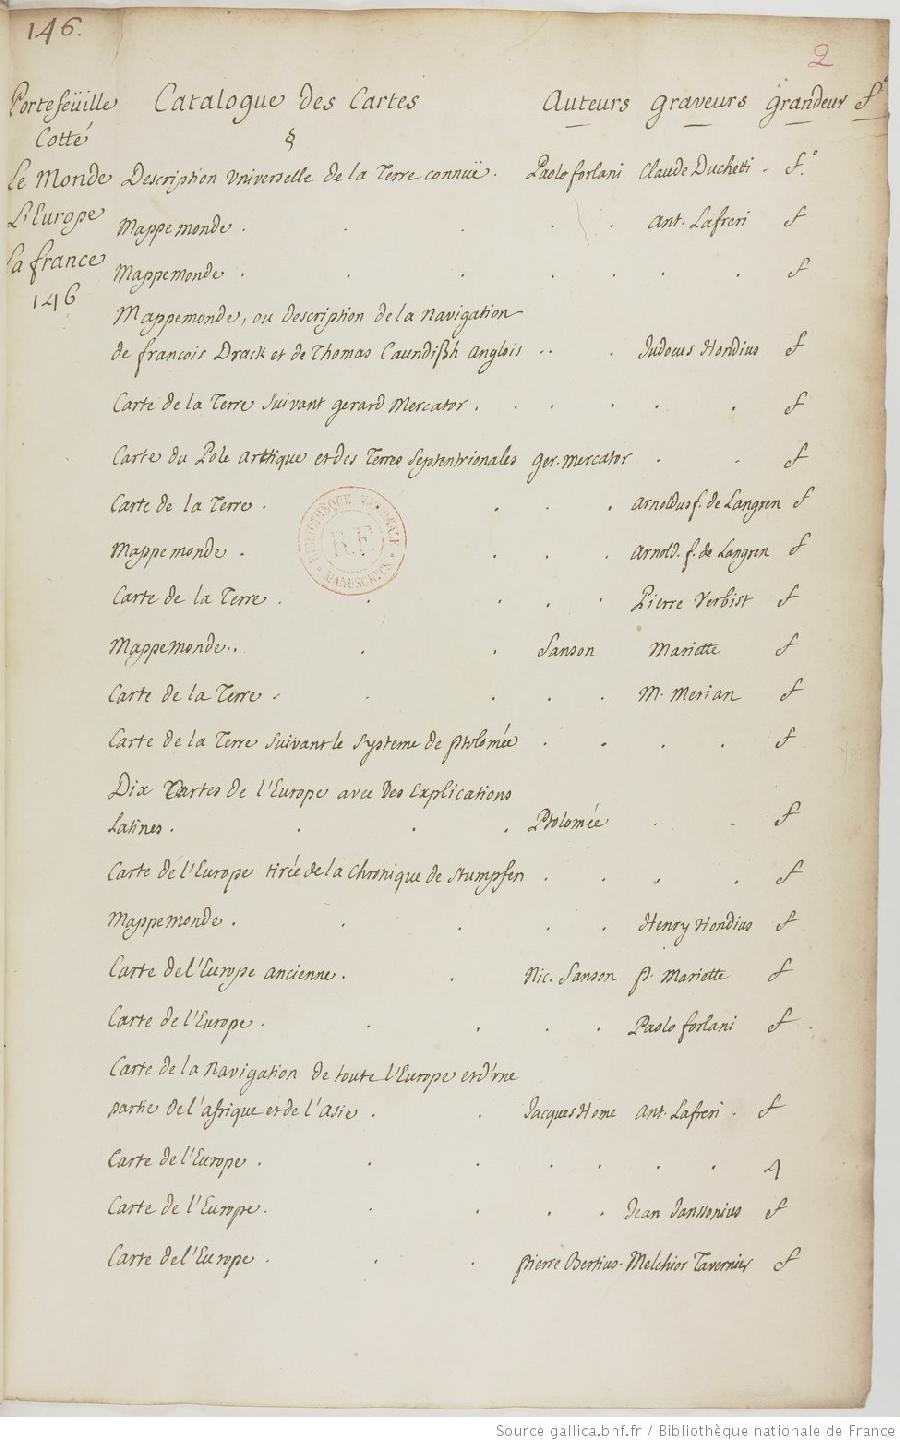 146.
2
Portefeüille Catalogue des Cartes Auteurs graveurs grandeur f.°
Cotté §
Le Monde Description Universelle de la Terre connuë. Paolo forlani Claude Duchetti. f.°
L'Europe
Mappemonde. Ant. Lafreri f
la france
Mappemonde. f
146
Mappemonde, ou description de la Navigation
de françois Drack et de Thomas Caundish Anglois Judocus Hondius f
Carte de la Terre suivant gerard Mercator. f
Carte du Pole arttique et des Terres Septentrionales ger. mercator f
Carte de la Terre. Arnoldus f. de Langren f
Mappemonde. Arnold. f. de Langren f
Carte de la Terre. Pierre Verbist f
Mappemonde. Sanson Mariette f
Carte de la Terre. M. Merian f
Carte de la Terre suivant le systeme de ptolomée f
Dix Cartes de l'Europe avec des explications
latines. Ptolomée f
Carte de l'Europe tirée de la Chronique de Stumpfen f
Mappemonde. Henry Hondius f
Carte de l'Europe ancienne. Nic. Sanson p. Mariette f
Carte de l'Europe. Paolo forlani f
Carte de la Navigation de toute l'Europe et d'vne
partie de l'afrique et de l'Asie. Jacques Home Ant. Lafreri. f
Carte de l'Europe. 4
Carte de l'Europe. Jean Janssonius f
Carte de l'Europe. pierre Bertius. Melchior Tavernier f
BIBLIOTHEQUE NATIONALE
R.F.
MANUSCRITS
Source gallica.bnf.fr / Bibliothèque nationale de France